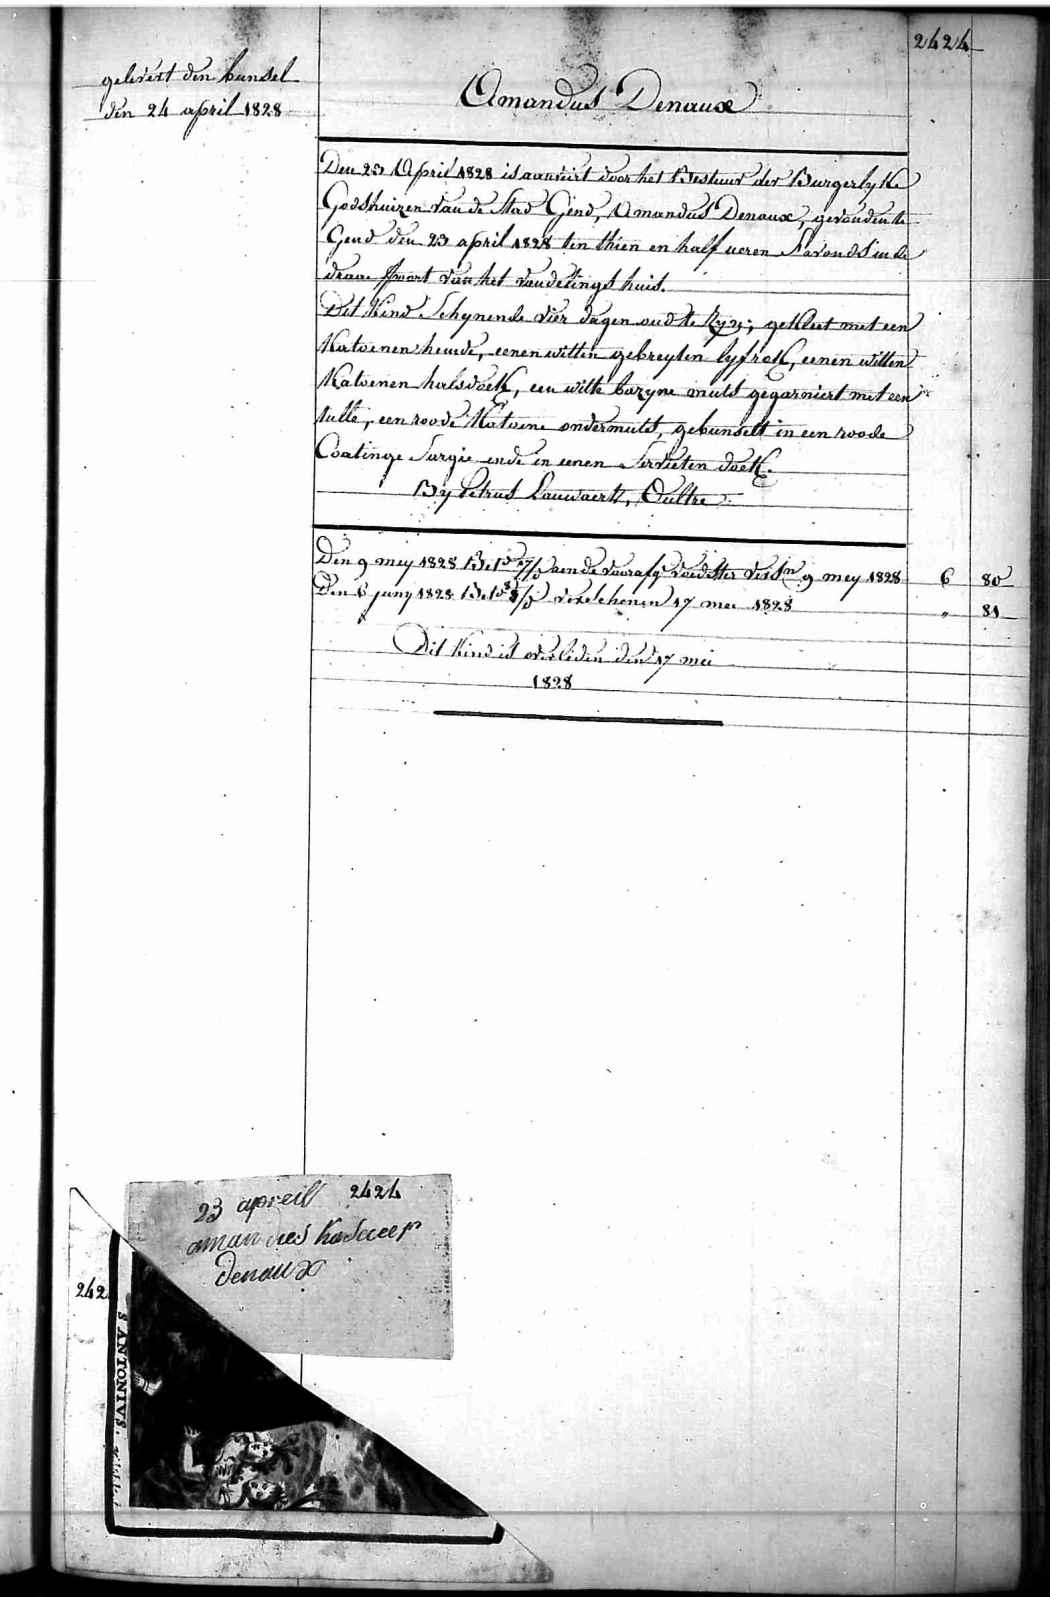 2424
gelevert den bunsel
den 24 april 1828
Amandus Denaux
Den 23 April 1828 is aanveirt door het Bestuur der Burgerlyke
Godshuizen van de Stad Gend, Amandus Denaux, gevonden te
Gend den 23 april 1828 ten thien en half ueren s'avonds in de
draae poort van het vondelings huis.
Dit Kind Schynende vier dagen oud te zyn; gekleet met een
Katoenen hemde, eenen witten gebreyten lyfrok, eenen witten
Katoenen halsdoek, een witte bazyne muts gegarniert met een
tulle, een roode Katoene ondermuts, gebunselt in een roode
Coatinge Sargie ende in eenen Servietten doek.
By Petrus Lauwaert, Oultre
Den 9 mey 1828 aen de voorafg voedster 9 mey 1828 6 80
Den 6 juny 1828 17 mei 1828 " 81
Dit Kind is overleden den 17 mei
1828
23 apreill 2424
amandes
denaux
242
S ANTONIVS.